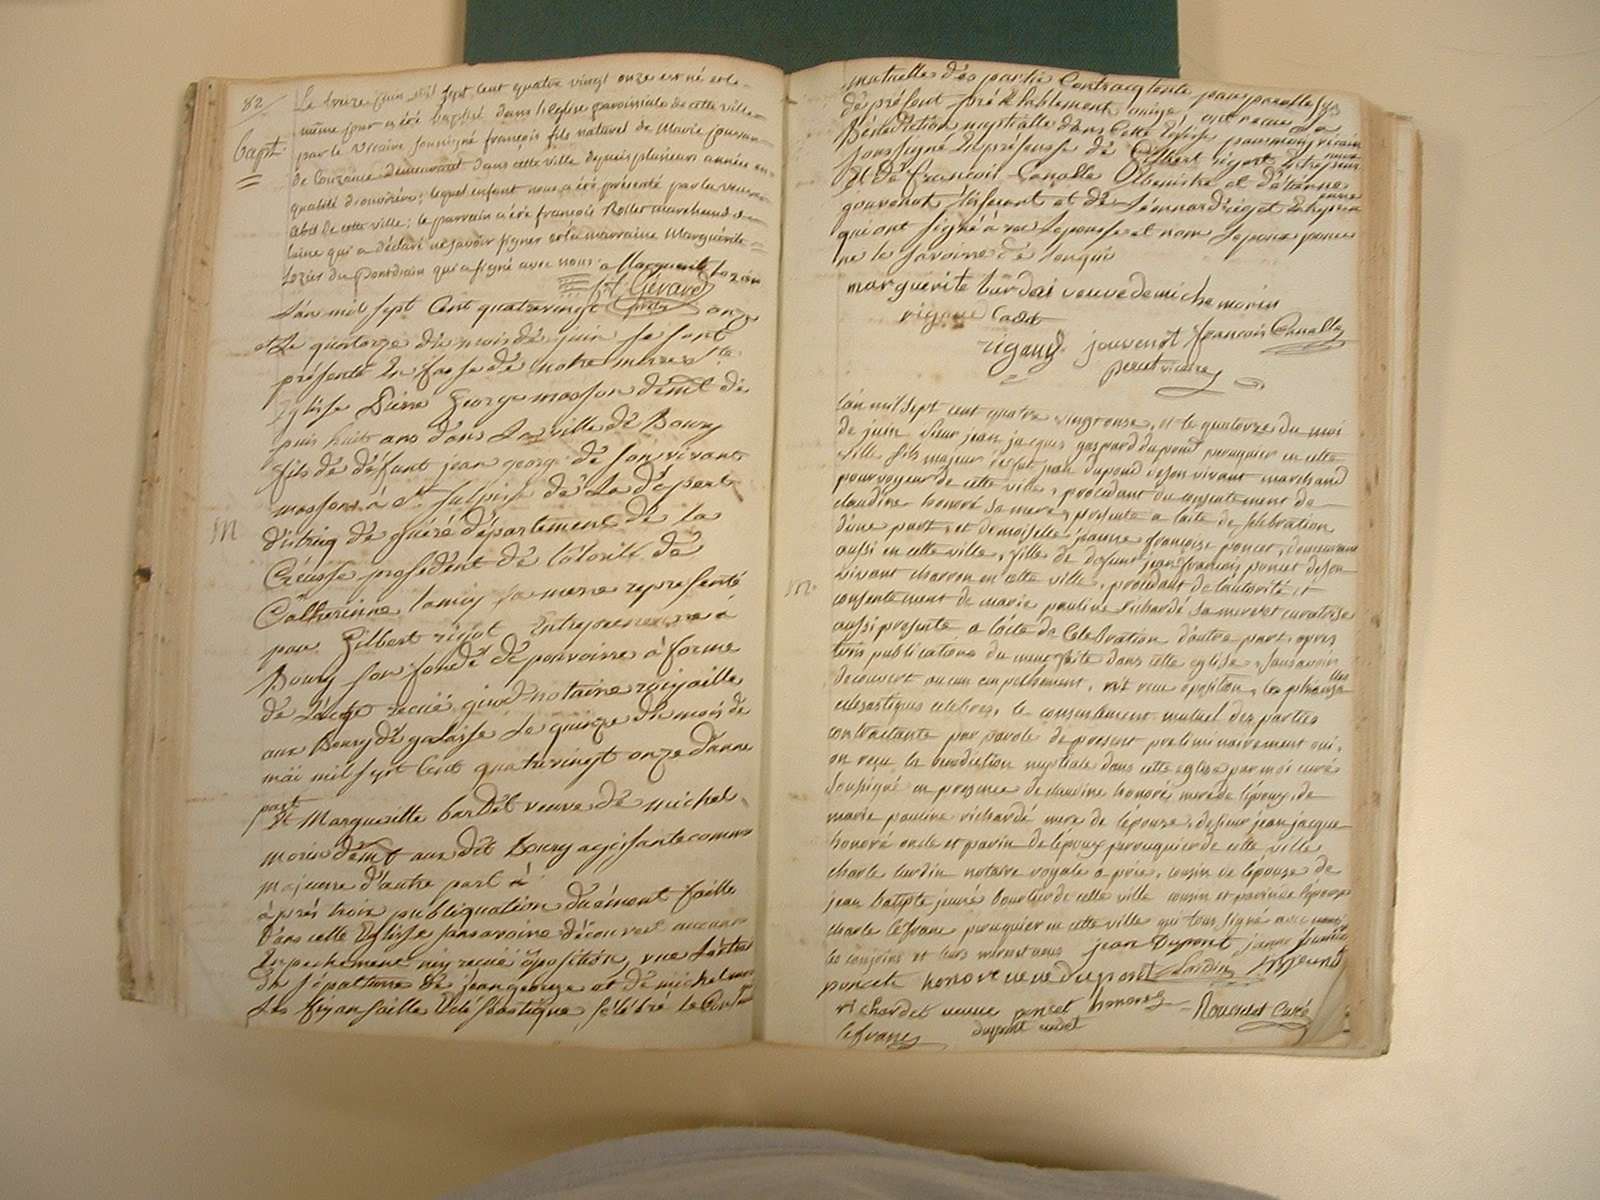 82
Bapt.
Le treize juin mil sept cent quatre vingt onze est né et le
même jour a été baptisé dans l'eglise paroissiale de cette ville
par le vicaire soussigné françois fils naturel de Marie
de Couzance demeurant dans cette ville depuis plusieurs années en
qualité d'ouvrière; lequel enfant nous a été présenté par la veuve
abit de cette ville; le parrain a été françois Rollet marchand de
laine qui a déclaré ne savoir signer et la marraine Marguerite
Lozier du pontdain qui a signé avec nous. Marguerite Lozier
Gevard
L'an mil sept Cent quatrevingt onze
et Le quatorze du mois de juin se sont
présenté En fasse de notre mere Ste
Eglise Pierre George masson demt dé
puis huit ans dans La ville de Bourg
fils dé défunt jean george de son vivant
masson à St Sulpise
district dé guéré département de la
Creusse procédent de l'otorité de
M
Catherinne lamiy sa mere représenté
par Gilbert rigot Entrepreneure à
Bourg son fondé dé pouvoirre à forme
dé L'acte recue notaire roiyaille
aux Bourg dé le quinze du mois dé
maï mil sept Cent quatrevingt onze d'unne
part
Et Margueritte bardet veuve dé michel
morin demt aux dit Bourg agissante comme
majeure d'autre part à
après trois publiquation duement faitte
Dans cette Eglisse sans avoire découvert aucun
Inpechement ny recue oposition, vue L'éxtrait
Dé sépulture dé jean george et dé michel morin
Les fiyansaille Eclésiastique sélébré le Conson
mutuelle des partie Contractante par parolles
dé présent préalablement ouige ont recue la
Bénédiction nuptialle dans Cette Eglise par moy vicaire
soussigné En présensse dé Gilbert rigot Entrepreneure
Et dé francois Canalle Ebeniste et d'étienne
jouvenot et dé Léonnard rigot
qui ont signé à vec Lepousse et nom Lepoux pour
ne le savoire dé
marguerite bardet veuve de miche morin
rigaue Cadet
rigaud jouvenot françois Canalle
peret vicaire
L'an mil sept cent quatre vingt onse, et le quatorze du moi
de juin sieur jean jacques gaspard dupont peruquier en cette
ville fils majeur de fut jean dupond de son vivant marchand
pourvoyeur de cette ville, procédant du consentement de
claudine honoré sa mere, presente a l'acte de célébration
d'une part, et demoiselle jeanne françoise poncet, demeurant
aussi en cette ville, fille de defunt jean francois poncet de son
vivant charron en cette ville, procédant de l'autorité et
m.
consentement de marie pauline richardé sa mere et curatrise
aussi presente a l'acte de Celebration d'autre part, apres
trois publications du meme faite dans cette eglise, sans avoir
decouvert aucun empechement, ni reçu oposition, les fiansailles
eclesiastiques celebrés, le consentement mutuel des parties
contractante par parole de present preliminairement oui,
on reçu la benediction nuptiale dans cette eglise par moi curé
soussigné en presence de claudine honoré, mere de l'époux, de
marie pauline richardé mere de l'épouse, de sieur jean jacque
honoré oncle et parin de l'époux peruquier de cette ville
charle lardin notaire royale a cousin de l'épouse de
jean batiste de cette ville cousin et parin de l'épouse
charle lefranc peruquier en cette ville qui tous signé avec nous,
les conjoins et leurs mere jean Dupont jeanne franiçs
poncete honore veve dupont Lardin
richardet veuve poncet honoré Rousselet Curé
lefranc dupont cadet